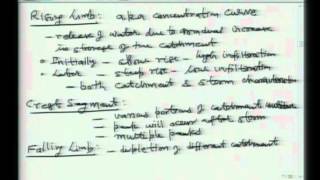 Rising Limb: a.k.a concentration curve
- release of water due to gradual increase
in storage of the catchment
• Initially - slow rise - high infiltration
- Later - steep rise - low infiltration
- both catchment & storm characteristics
Crest Segment:
- various portions of catchment
- peak will occur after storm
- multiple peaks
Falling Limb: - depletion of different catchment